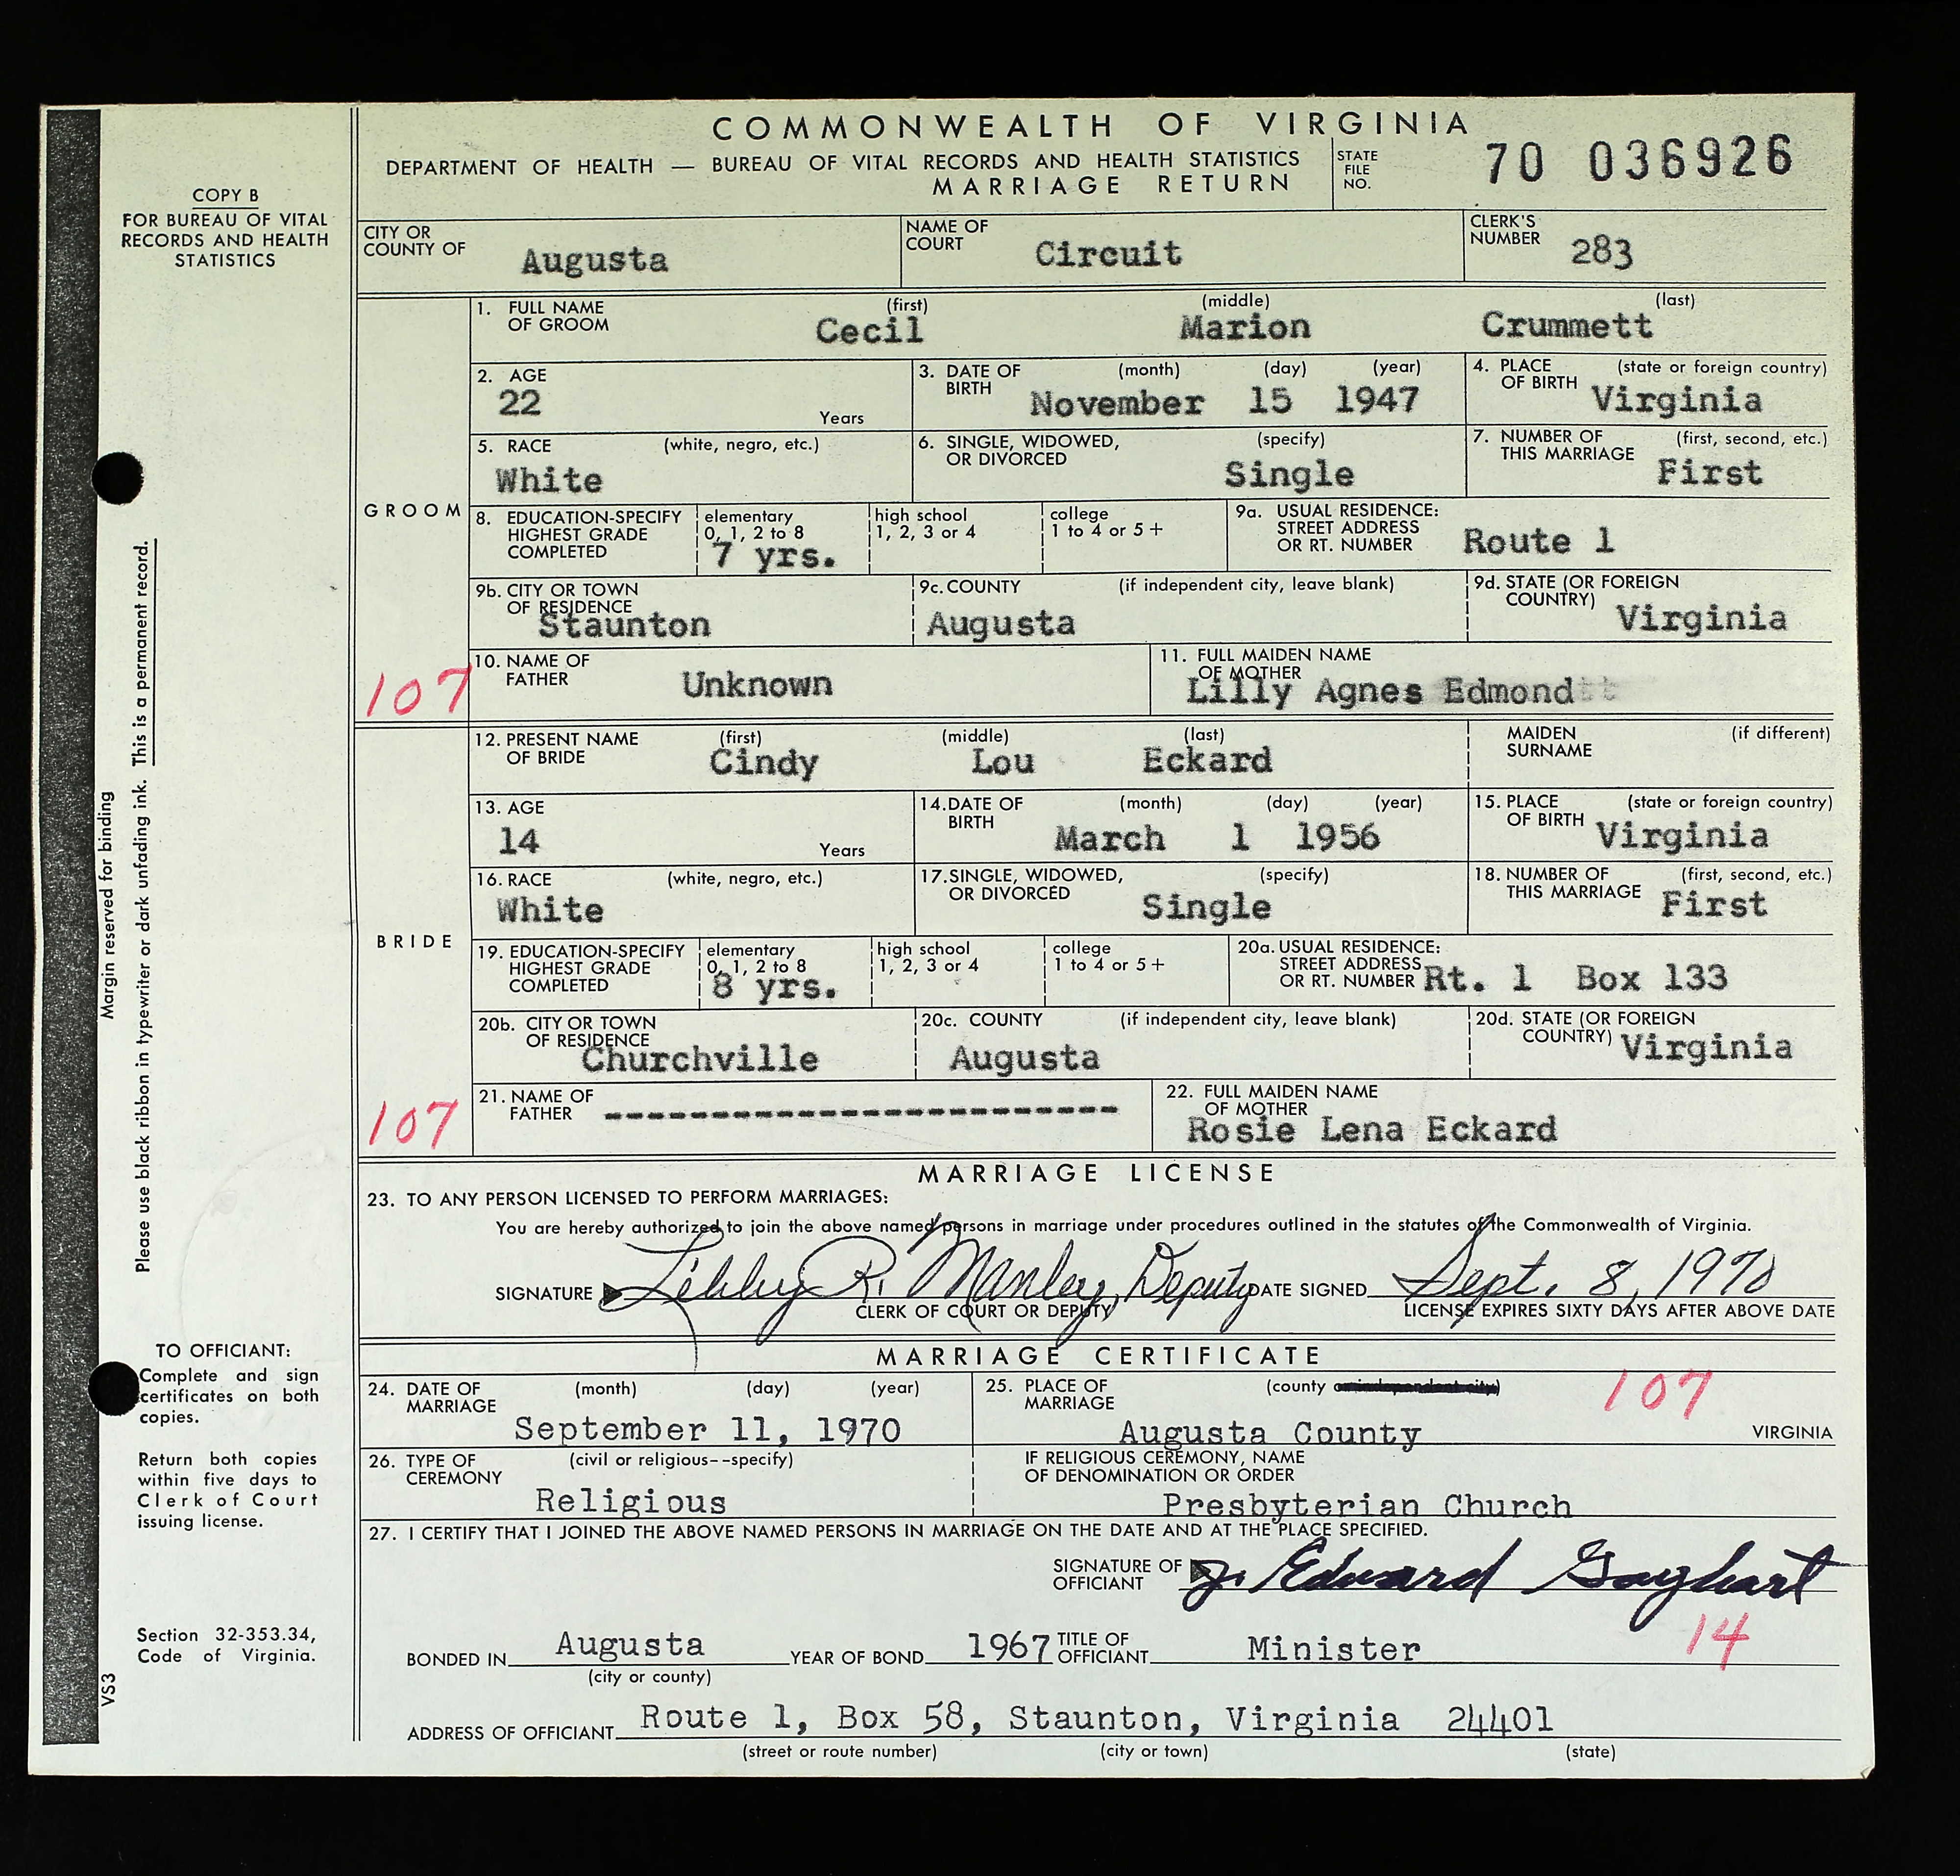 COMMONWEALTH OF VIRGINIA
DEPARTMENT OF HEALTH — BUREAU OF VITAL RECORDS AND HEALTH STATISTICS
MARRIAGE RETURN
STATE FILE NO. 70 036926
COPY B
FOR BUREAU OF VITAL
RECORDS AND HEALTH
STATISTICS
CITY OR COUNTY OF Augusta NAME OF COURT Circuit CLERK'S NUMBER 283
GROOM
1. FULL NAME OF GROOM (first) Cecil (middle) Marion (last) Crummett
2. AGE 22 Years 3. DATE OF BIRTH (month) (day) (year) November 15 1947 4. PLACE OF BIRTH (state or foreign country) Virginia
5. RACE (white, negro, etc.) White 6. SINGLE, WIDOWED, OR DIVORCED (specify) Single 7. NUMBER OF THIS MARRIAGE (first, second, etc.) First
8. EDUCATION-SPECIFY HIGHEST GRADE COMPLETED elementary 0, 1, 2 to 8 7 yrs. high school 1, 2, 3 or 4 college 1 to 4 or 5+ 9a. USUAL RESIDENCE: STREET ADDRESS OR RT. NUMBER Route 1
9b. CITY OR TOWN OF RESIDENCE Staunton 9c. COUNTY (if independent city, leave blank) Augusta 9d. STATE (OR FOREIGN COUNTRY) Virginia
107
10. NAME OF FATHER Unknown 11. FULL MAIDEN NAME OF MOTHER Lilly Agnes Edmond
BRIDE
12. PRESENT NAME OF BRIDE (first) Cindy (middle) Lou (last) Eckard MAIDEN SURNAME (if different)
13. AGE 14 Years 14. DATE OF BIRTH (month) (day) (year) March 1 1956 15. PLACE OF BIRTH (state or foreign country) Virginia
16. RACE (white, negro, etc.) White 17. SINGLE, WIDOWED, OR DIVORCED (specify) Single 18. NUMBER OF THIS MARRIAGE (first, second, etc.) First
19. EDUCATION-SPECIFY HIGHEST GRADE COMPLETED elementary 0, 1, 2 to 8 8 yrs. high school 1, 2, 3 or 4 college 1 to 4 or 5+ 20a. USUAL RESIDENCE: STREET ADDRESS OR RT. NUMBER Rt. 1 Box 133
20b. CITY OR TOWN OF RESIDENCE Churchville 20c. COUNTY (if independent city, leave blank) Augusta 20d. STATE (OR FOREIGN COUNTRY) Virginia
107
21. NAME OF FATHER ------------------------ 22. FULL MAIDEN NAME OF MOTHER Rosie Lena Eckard
MARRIAGE LICENSE
23. TO ANY PERSON LICENSED TO PERFORM MARRIAGES:
You are hereby authorized to join the above named persons in marriage under procedures outlined in the statutes of the Commonwealth of Virginia.
SIGNATURE Libby R. Manley, Deputy DATE SIGNED Sept. 8, 1970
CLERK OF COURT OR DEPUTY LICENSE EXPIRES SIXTY DAYS AFTER ABOVE DATE
MARRIAGE CERTIFICATE
24. DATE OF MARRIAGE (month) (day) (year) September 11, 1970 25. PLACE OF MARRIAGE (county or independent city) Augusta County 107 VIRGINIA
26. TYPE OF CEREMONY (civil or religious--specify) Religious IF RELIGIOUS CEREMONY, NAME OF DENOMINATION OR ORDER Presbyterian Church
27. I CERTIFY THAT I JOINED THE ABOVE NAMED PERSONS IN MARRIAGE ON THE DATE AND AT THE PLACE SPECIFIED.
SIGNATURE OF OFFICIANT J. Edward Gayhart
14
BONDED IN Augusta YEAR OF BOND 1967 TITLE OF OFFICIANT Minister
(city or county)
ADDRESS OF OFFICIANT Route 1, Box 58, Staunton, Virginia 24401
(street or route number) (city or town) (state)
Margin reserved for binding
Please use black ribbon in typewriter or dark unfading ink. This is a permanent record.
TO OFFICIANT:
Complete and sign
certificates on both
copies.
Return both copies
within five days to
Clerk of Court
issuing license.
Section 32-353.34,
Code of Virginia.
VS3